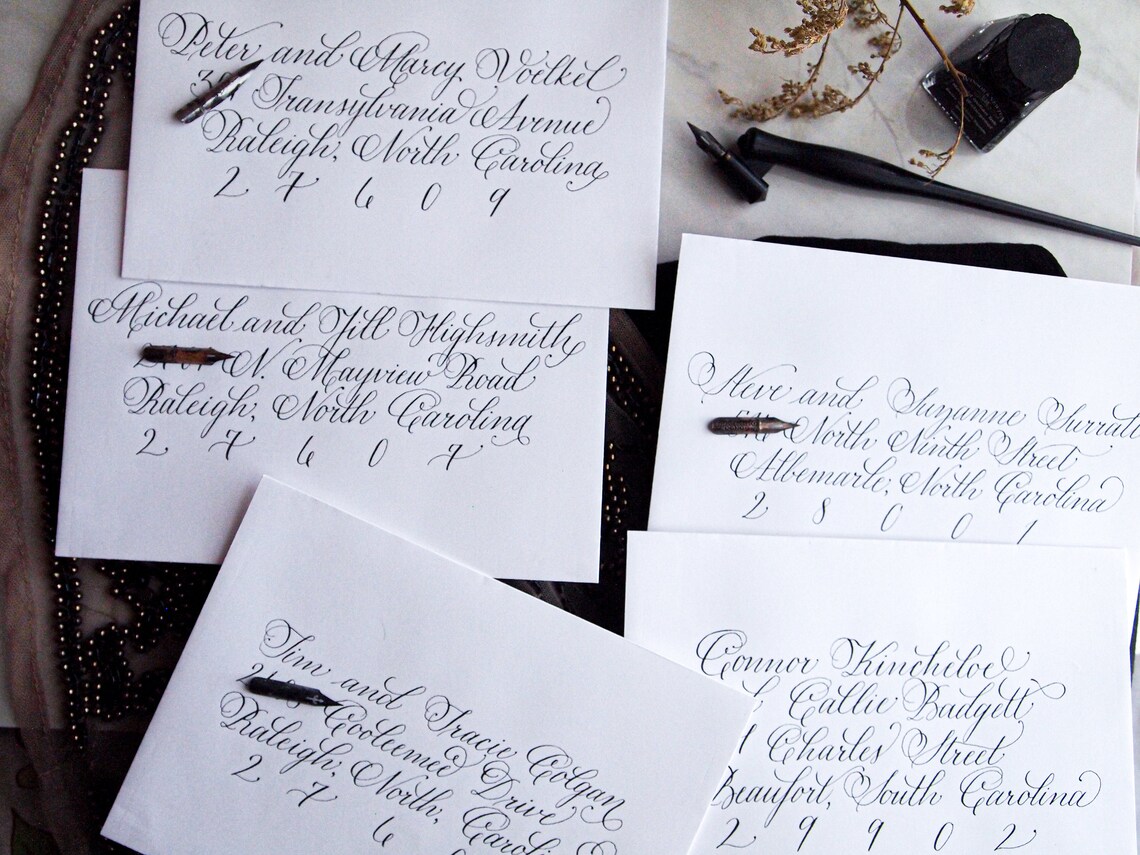 Peter and Marcy Voelkel
Transylvania Avenue
Raleigh, North Carolina
2 7 6 0 9
Michael and Jill Highsmith
N. Mayview Road
Raleigh, North Carolina
2 7 6 0 7
Steve and Suzanne Surratt
North Ninth Street
Albemarle, North Carolina
2 8 0 0 1
Tim and Tracie Colgan
Cooleemee Drive
Raleigh, North Carolina
2 7 6
Connor Kincheloe
Callie Badgett
Charles Street
Beaufort, South Carolina
2 9 9 0 2